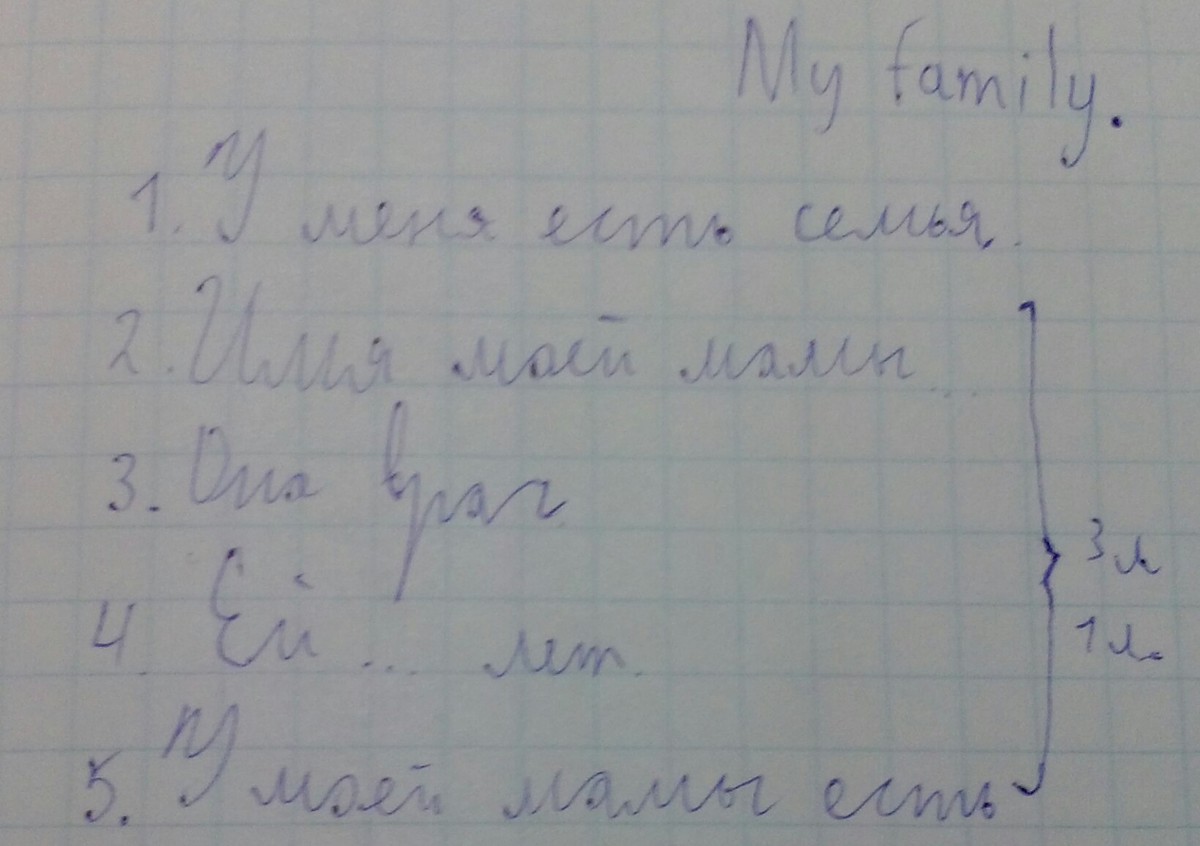 My family.
1. У меня есть семья.
2. Имя моей мамы...
3. Она врач
4. Ей ... лет.
5. У моей мамы есть
3 л
1 л.